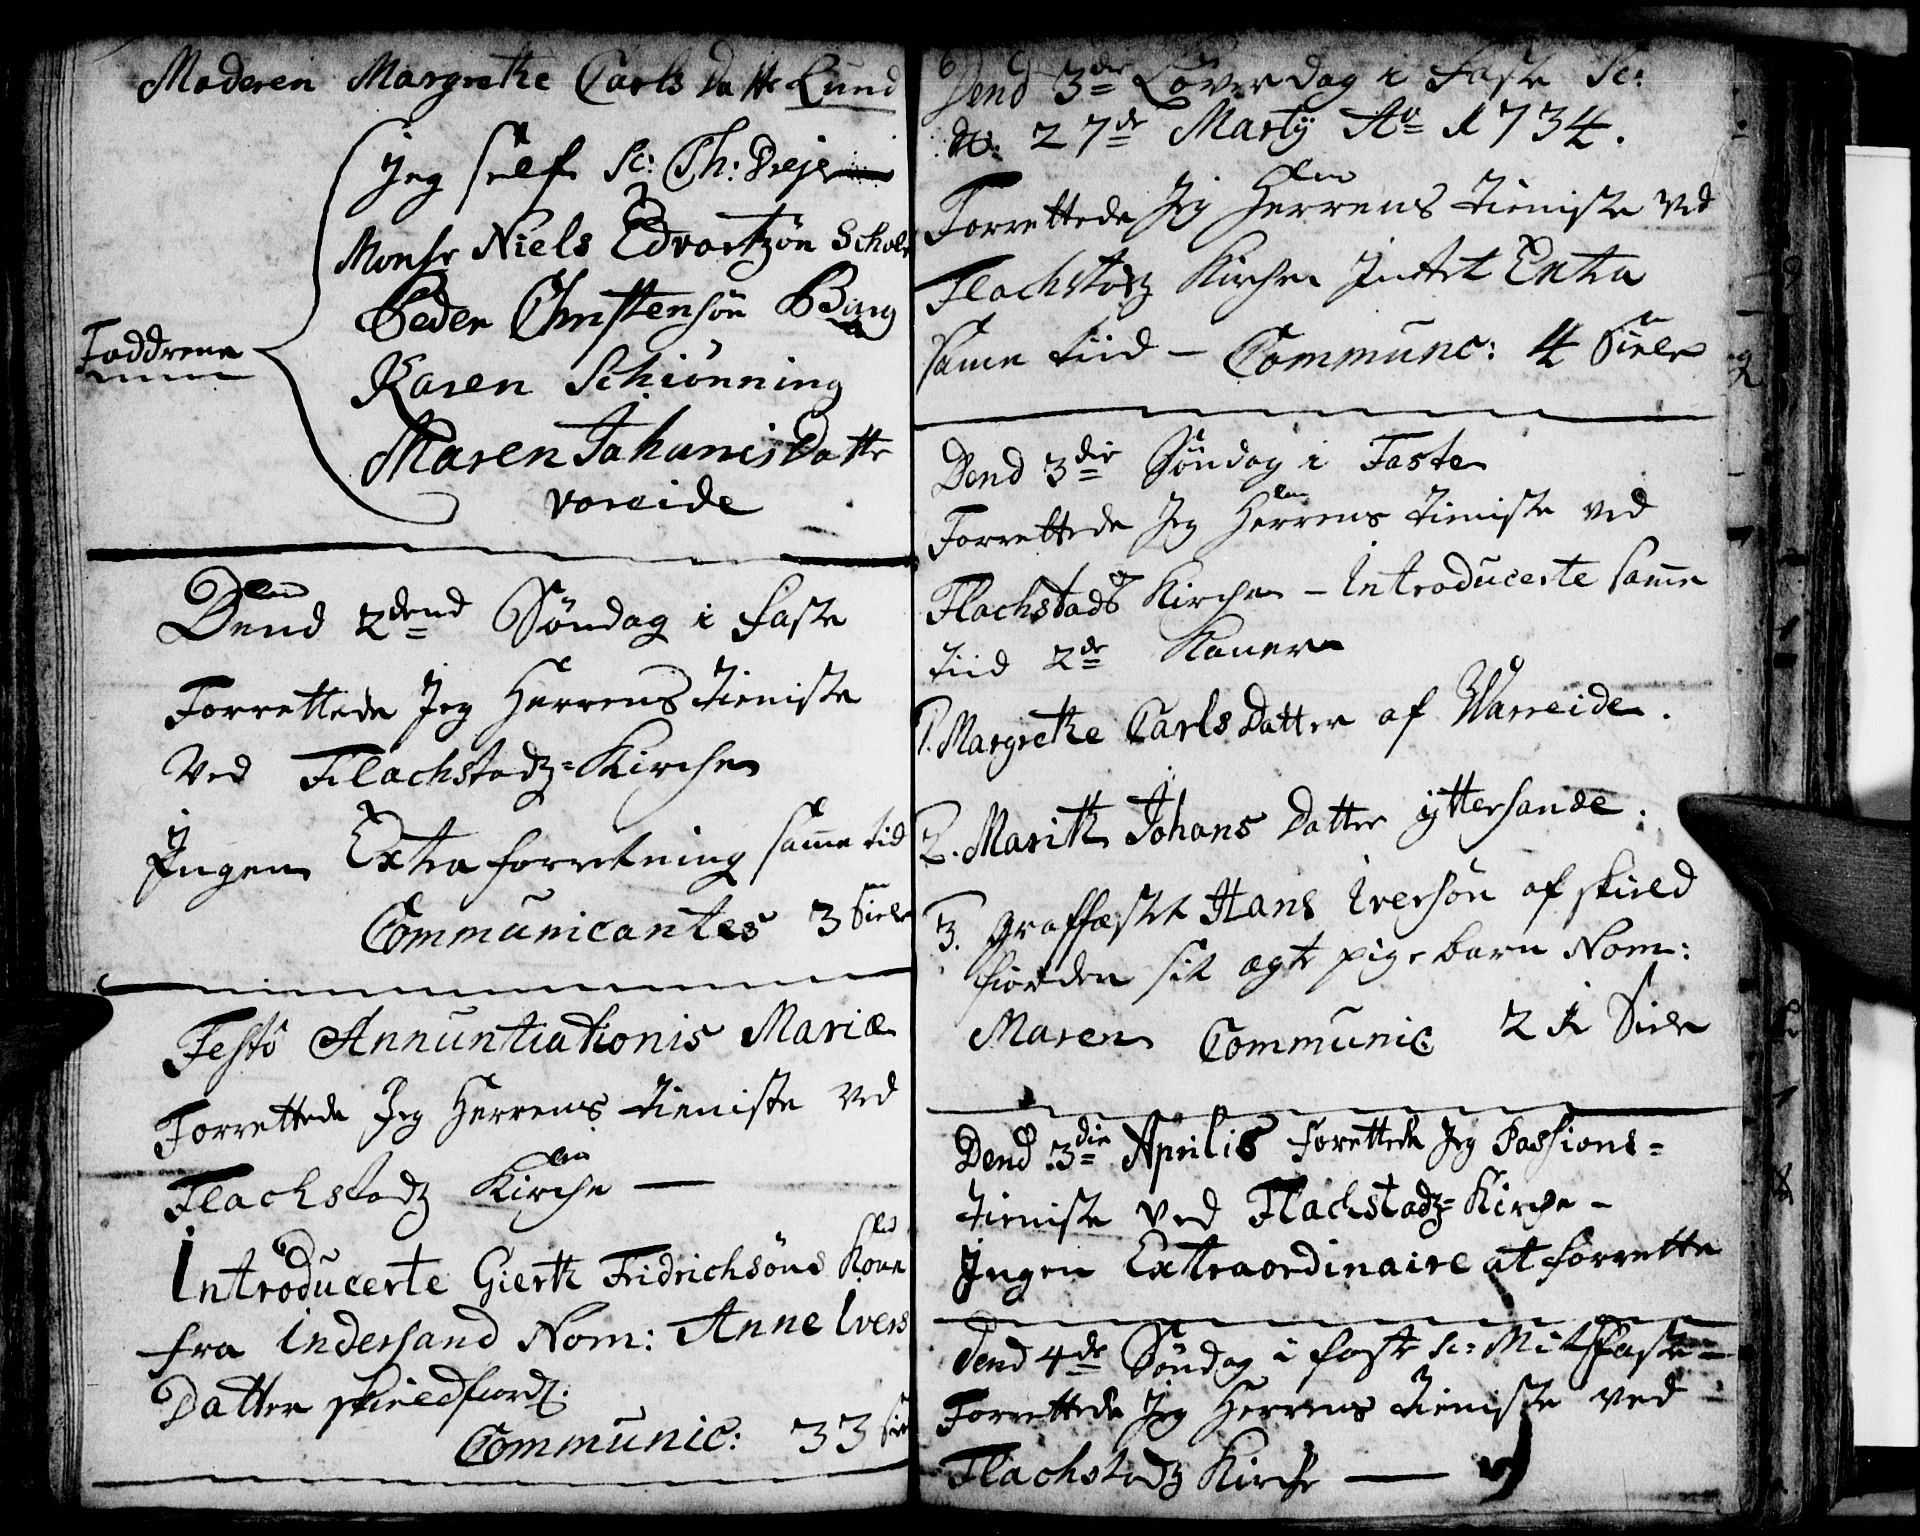 Moderen Margrethe Carls Datter Lund
Jeg self sc: Th:
Monsr Niels Edvartzøn
Peder Christensøn Bang
Faddrene
Karen Schiønning
Maren Johannis Datter
Voreide
Dend 2dend Søndag i Faste
Forrettede Jeg Herrens tieniste
Ved Flachstadz-Kirche
Ingen Extra forretning samme tid
Communicantes 3 Siele
Festo Annuntiationis Mariæ
Forrettede Jeg Herrens tieniste Ved
Flachstadz Kirche —
Introducerte Giert Fridrichsøns Kone
fra Indersand Nom: Anne Ivers
Datter skieldfiord:
Communic: 33
Dend 3de Løverdag i Faste sc:
d. 27de Martij Ao 1734.
Forrettede Jeg Herrens tieniste Ved
Flachstadz Kirche Intet Extra
same tiid — Communc: 4 Siele
Dend 3die Søndag i Faste
Forrettede Jeg Herrens tieniste ved
Flachstads Kirche — Introducerte samme
tiid 2de Koner
1. Margrethe Carls Datter af Warreide.
2. Marith Johans Datter yttersande.
3. graffæstet Hans Iversøn af skield
fiorden sit ægte pige barn Nom:
Maren Communic 21 Siele
Dend 3die Aprilis forettede Jeg Passions-
tieniste ved Flachstadz-Kirche —
Ingen Extraordinaire at forrette
Dend 4de Søndag i faste sc: MitFaste —
Forrettede Jeg Herrens tieniste ved
Flachstadz Kirche —